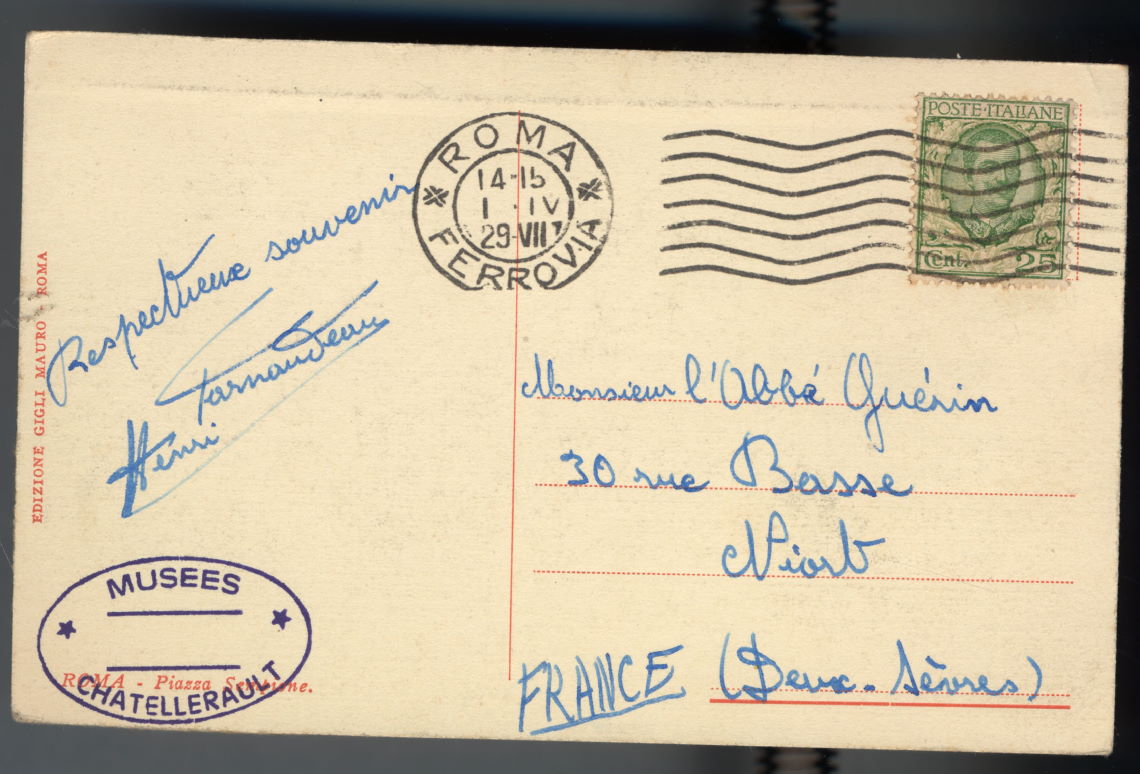 EDIZIONE GIGLI MAURO - ROMA
Respectueux souvenir
Henri
ROMA
14-15
1 · IV
29-VII
FERROVIA
POSTE·ITALIANE
Cent. 25
Monsieur l'Abbé Guérin
30 rue Basse
Niort
FRANCE (Deux-Sèvres)
MUSEES
CHATELLERAULT
ROMA - Piazza Sempione.